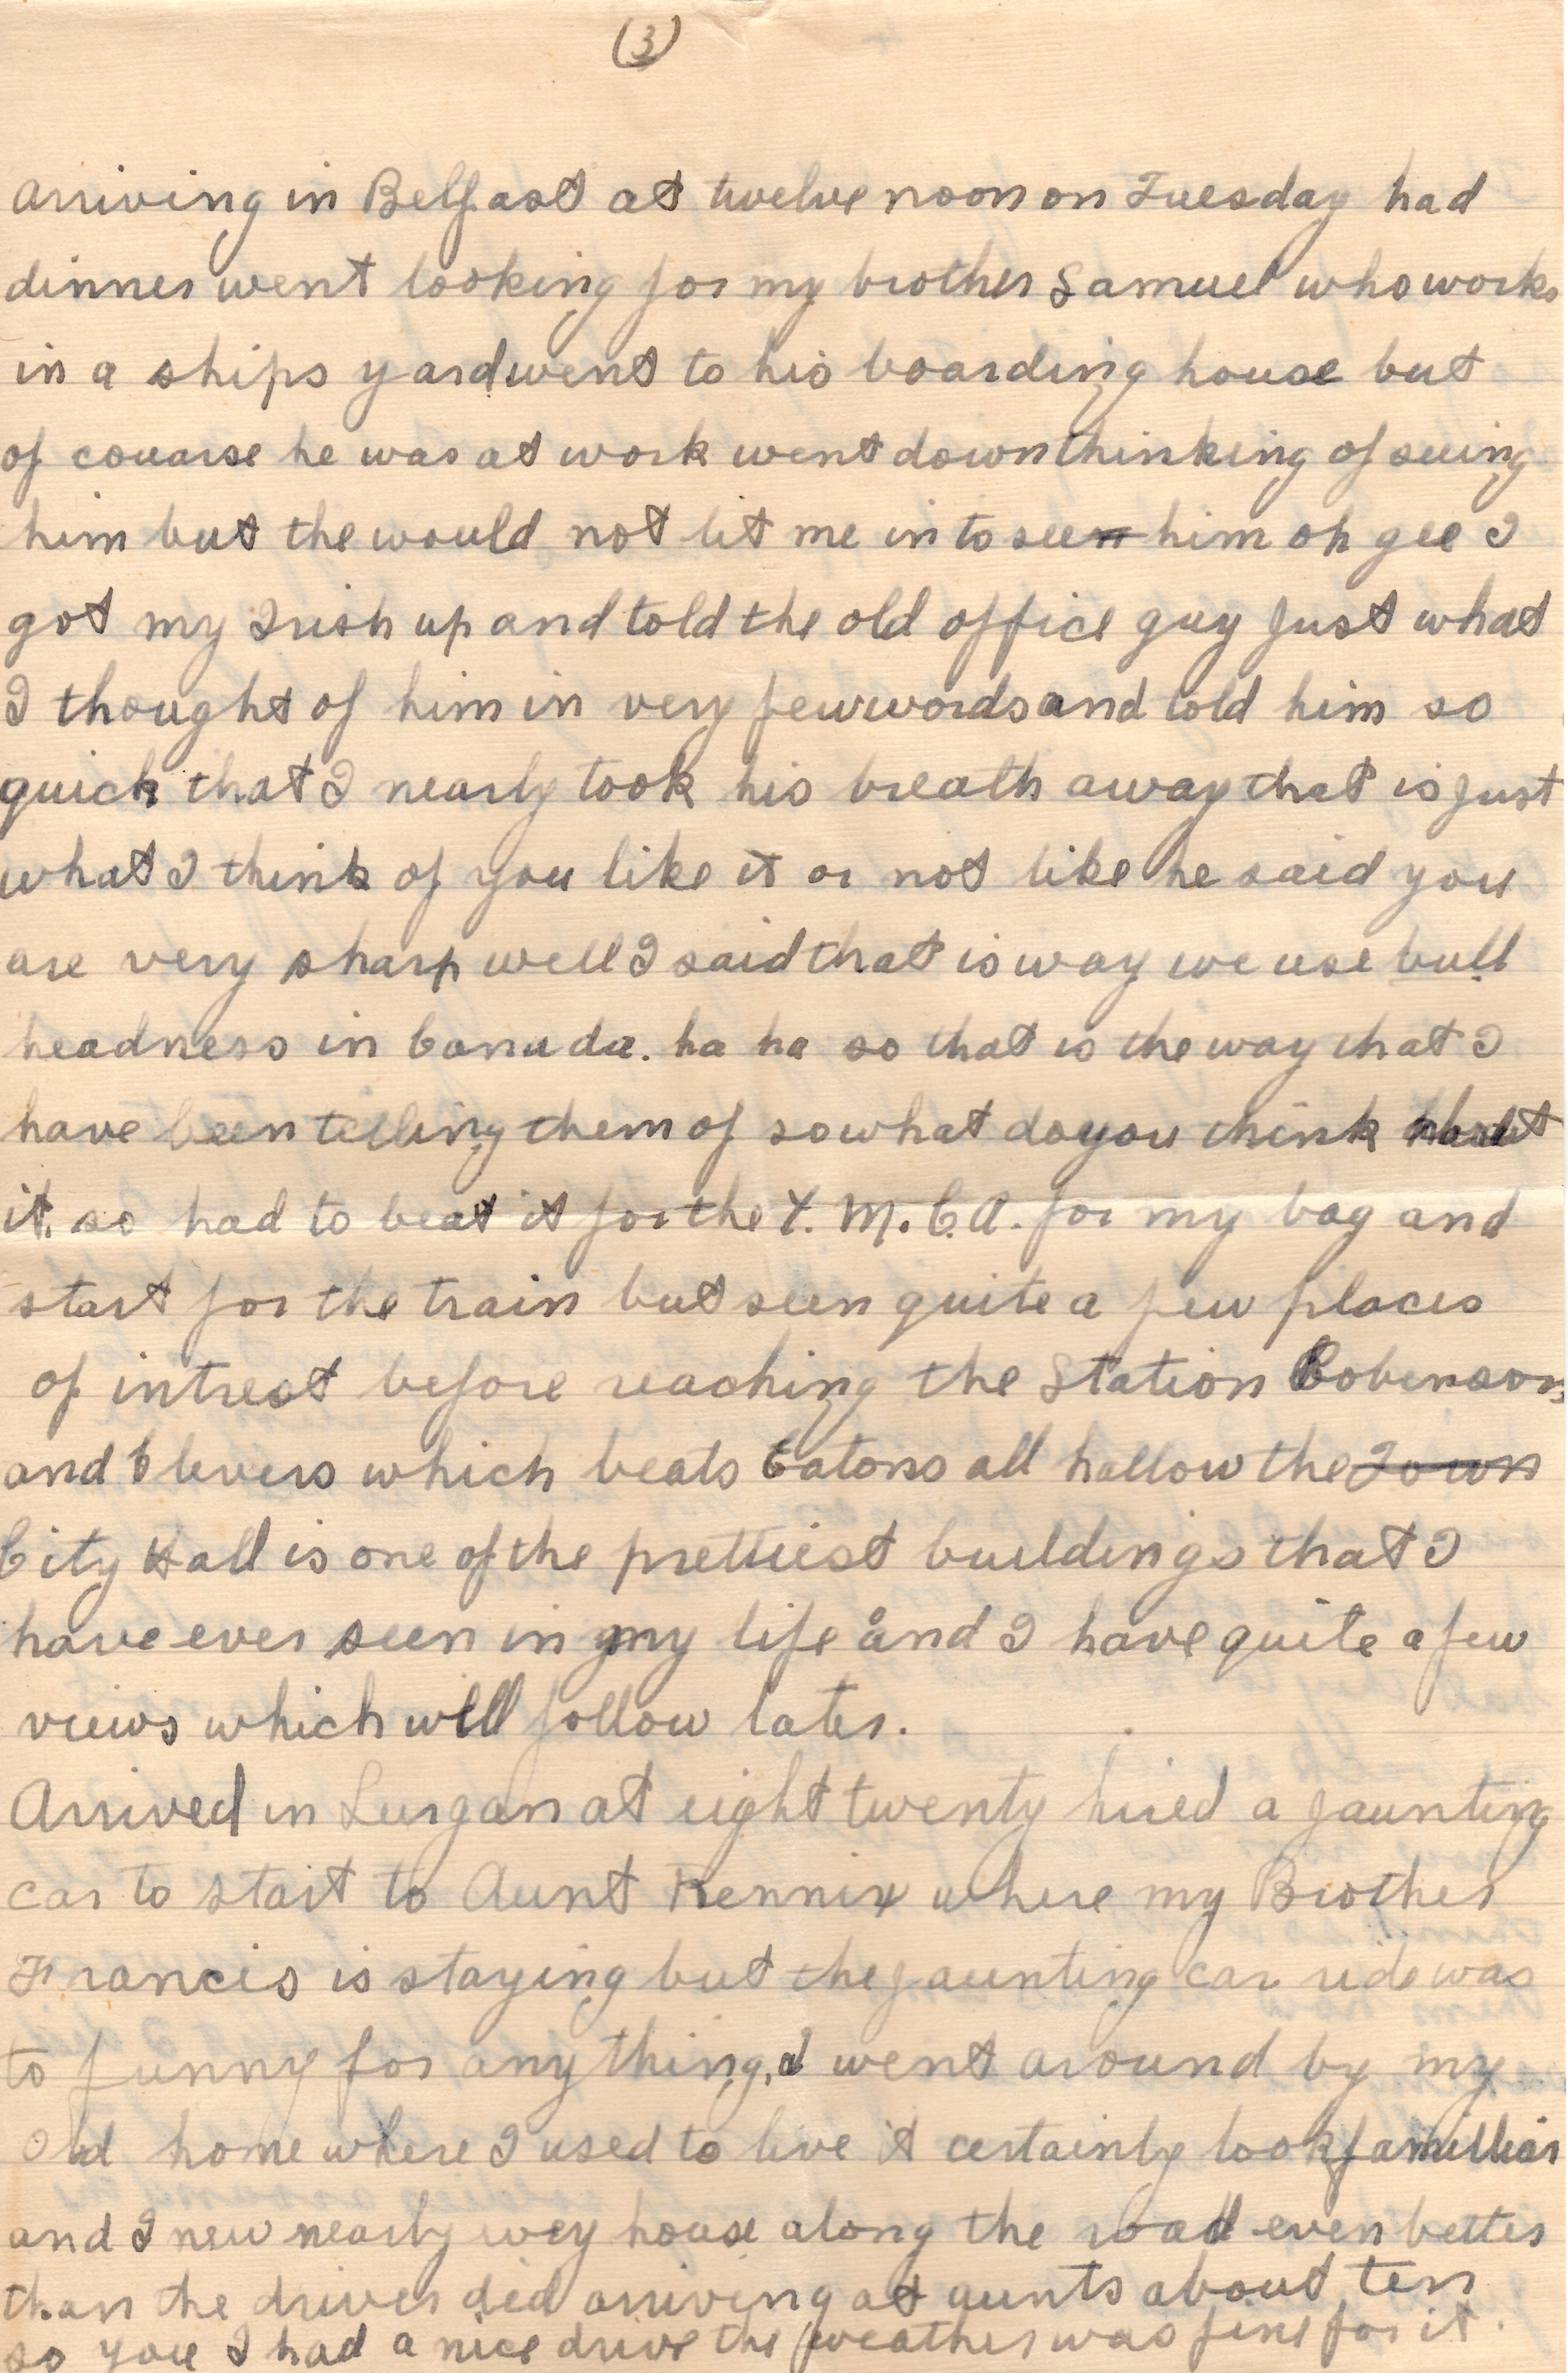 (3)
arriving in Belfast at twelve noon on Tuesday had
dinner went looking for my brother Samuel who works
in a ships yard went to his boarding house but
of couarse he was at work went down thinking of seeing
him but the would not let me in to see him oh gee I
got my Irish up and told the old office guy just what
I thought of him in very few words and told him so
quick that I nearly took his breath away that is just
what I think of you like it or not like he said you
are very sharp well I said that is way we use bull
headness in Canada. ha ha so that is the way that I
have been telling them of so what do you think about
it. so had to beat it for the Y. M. C. A. for my bag and
start for the train but seen quite a few places
of intrest before reaching the Station Robenson
and Clevers which beats Eatons all hallow the Town
City Hall is one of the prettiest buildings that I
have ever seen in my life and I have quite a few
views which will follow later.
Arrived in Lurgan at eight twenty hired a jaunting
car to start to Aunt Rennix where my Brother
Francis is staying but the jaunting car ride was
to funny for anything, I went around by my
Old home where I used to live it certainly look familliar
and I new nearly evey house along the road even better
than the driver did arriving at aunts about ten
so you I had a nice drive the weather was fine for it.